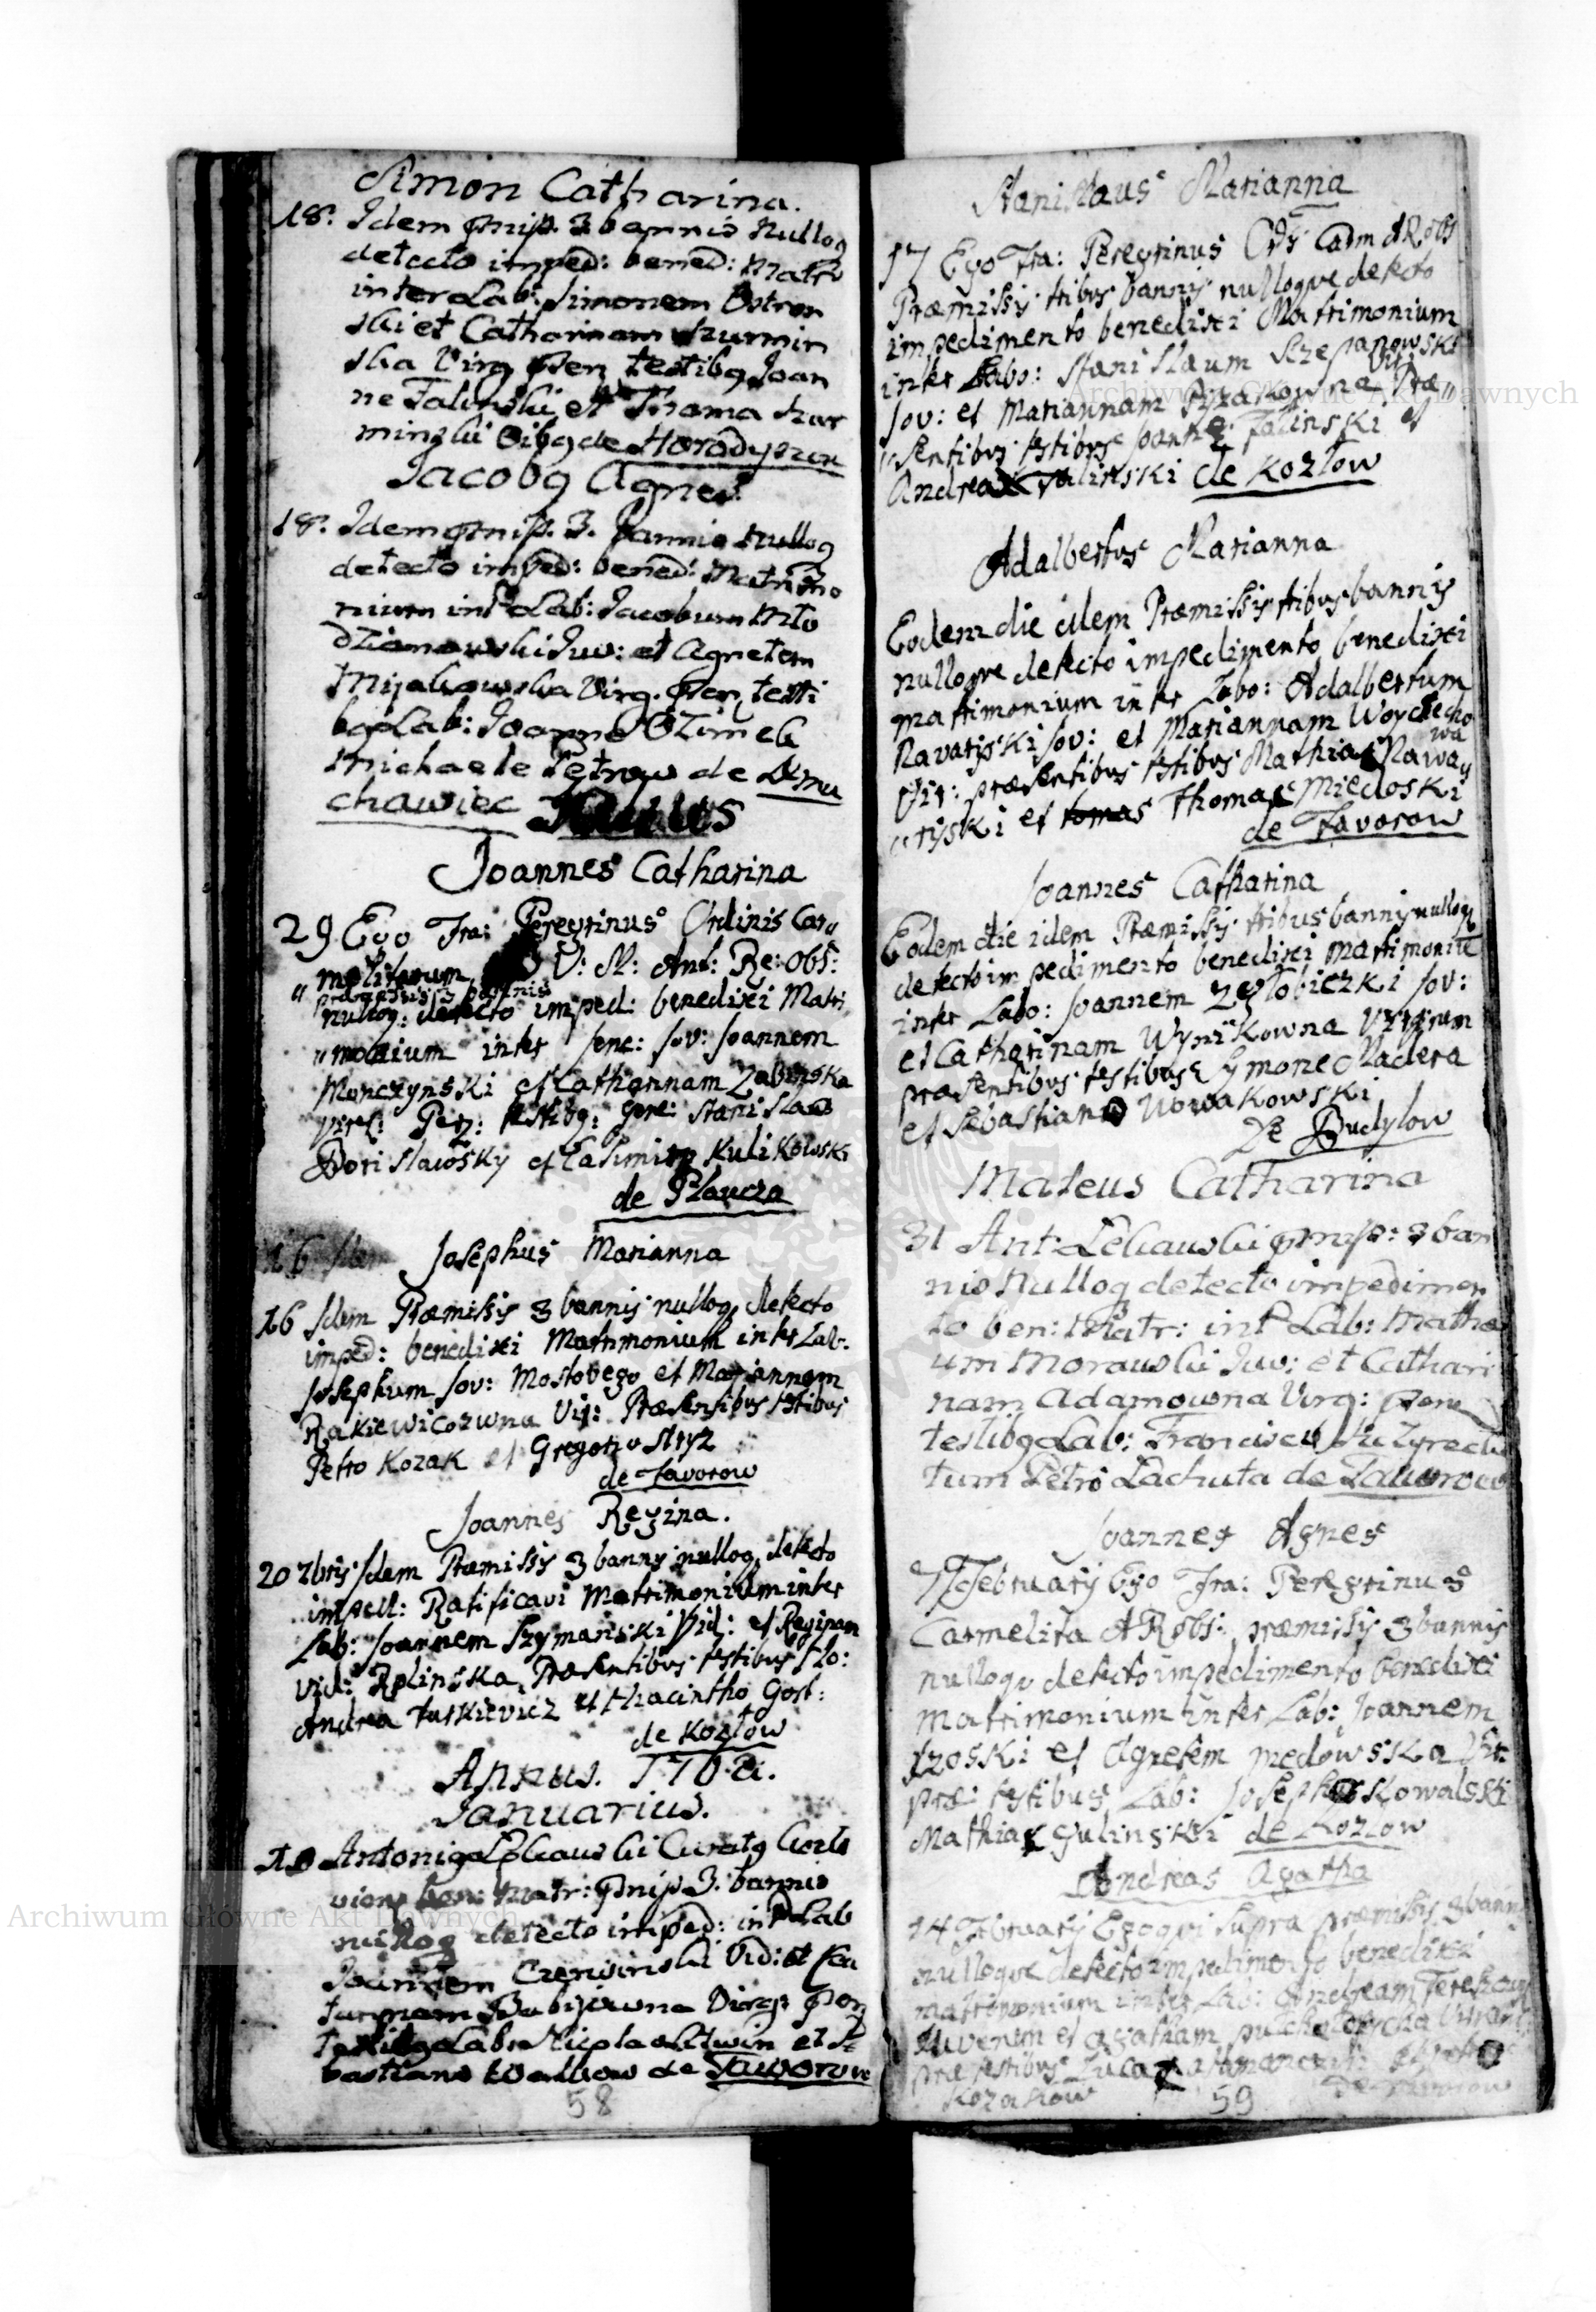 Simon Catharina.
18. Idem pmis. 3 bannis nullog
detecto imped: bened: Matri
inter Lab: Simonem Ostron
ski et Catharinam Szurmin
ska Virg pren testibg Joan
ne Falinski et Thoma Szur
minski Oibg de Horodyszcze
Jacobg Agnes
18. Idem pmis. 3. Bannis nullog
detecto imped: bened: Matrimo
nium int Lab: Jacobum Mło
dzianowski Juv: et Agnetem
Mijakowska Virg. pren testi
bg Lab: Joanne Ozimek
Michaele Petrow de Dmu
chawiec
Joannes Catharina
29. Ego Fra: Peregrinus Ordinis Car
melitarum V: M: Ant: Re: Obs:
præmissis 3 bannis
nullog: detecto imped: benedixi Matri
monium inter Gene: Jov: Joannem
Monczynski et Catharinam Zabinska
virg: Prez: testibg: Gene: Stanislao
Borislawsky et Casimiro Kulikowski
de Płaucza
16 Idem Josephus Marianna
16 Idem Præmissis 3 bannis nullog detecto
imped: benedixi Matrimonium inter Lab:
Josephum Jov: Mostovego et Mariannam
Rakiewiczowna Vir: Præsentibus testibus
Petro Kozak et Gregorio Stryz
de Javorow
Joannes Regina.
20 Xbris Idem Præmissis 3 bannis nullog detecto
imped: Ratificavi Matrimonium inter
Lab: Joannem Szymanski Vid: et Reginam
Vid: Rolinska, Præsentibus testibus
Andrea Turkievicz et Hiacintho Gost:
de Kozłow
Annus. 176
Januarius.
10 Antonig Lekawski Curatg Cozlo
viens ben: Matr: pmis 3. bannis
nullog detecto imped: int Lab
Joannem Czerwinski Vid: et
Babijowna Virg: pren
testibg Lab: Nicolao Litwin et Se
bastiano de Jaworow
58
Stanislaus Marianna
17 Ego Fra: Peregrinus Ords Carm A R Obs
Præmissis tribus bannis nulloque detecto
impedimento benedixi Matrimonium
inter Labo: Stanislaum Szczepanowski
Jov: et Mariannam Pyzakowna Vir Præ
sentibus testibus Joanne Falinski et
Andrea Gulinski de Kozłow
Adalbertus Marianna
Eodem die idem Præmissis tribus bannis
nulloque detecto impedimento benedixi
matrimonium inter Labo: Adalbertum
Ravaryski Jov: et Mariannam Woyciecho
wa
Vir: præsentibus testibus Mathia Rawa
ryski et Thomas Thoma Miedoski
de Javorow
Joannes Catharina
Eodem die idem Præmissis tribus bannis nulloq
detecto impedimento benedixi matrimoniū
inter Labo: Joannem Zgłobiczki Jov:
et Catharinam Wynikowna Virginem
præsentibus testibus Symone Madera
et Sebastiano Nowakowski
Ze Budyłow
Mateus Catharina
31 Ant: Lekawski pmis: 3 ban
nis Nullog detecto impedimen
to ben: Matr: int Lab: Mathæ
um Morawski Juv: et Cathari
nam Adamowna Virg: pren
testibg Lab: Francisco
tum Petro Lachuta de Jaworow
Joannes Agnes
7 February Ego Fra: Peregrinus
Carmelita A R Obs: præmissis 3 bannis
nulloqe detecto impedimento benedixi
matrimonium inter Lab: Joannem
et Agnetem medowska Vir:
præ: testibus Lab: Josepho Kowalski
Mathia Gulinski de Kozłow
Andreas Agatha
14 February Ego qui supra præmissis 3 bannis
nulloque detecto impedimento benedixi
matrimonium inter Lab: Andream
Juvenem et Agatham
præ testibus Luca et Petro
Kozakow de Javorow
59
Archiwum Główne Akt Dawnych
Archiwum Główne Akt Dawnych